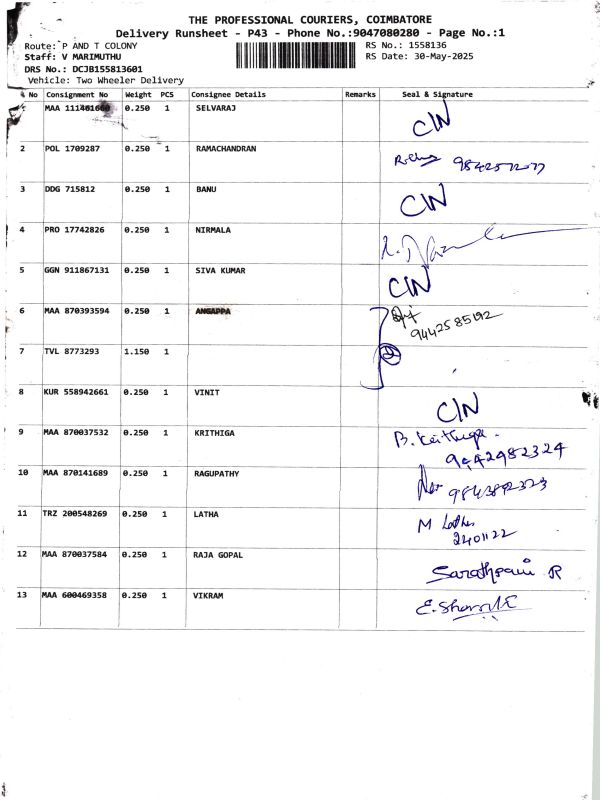 THE PROFESSIONAL COURIERS, COIMBATORE
Delivery Runsheet - P43 - Phone No.:9047080280 - Page No.:1
Route: P AND T COLONY
RS No.: 1558136
Staff: V MARIMUTHU
RS Date: 30-May-2025
DRS No.: DCJB155813601
Vehicle: Two Wheeler Delivery
No Consignment No Weight PCS Consignee Details Remarks Seal & Signature
MAA 0.250 1 SELVARAJ C/N
2 POL 1709287 0.250 1 RAMACHANDRAN
3 DDG 715812 0.250 1 BANU C/N
4 PRO 17742826 0.250 1 NIRMALA
5 GGN 911867131 0.250 1 SIVA KUMAR C/N
6 MAA 870393594 0.250 1 ANGAPPA
9442585192
7 TVL 8773293 1.150 1 2
8 KUR 558942661 0.250 1 VINIT C/N
9 MAA 870037532 0.250 1 KRITHIGA B. Krithiga
9442982324
10 MAA 870141689 0.250 1 RAGUPATHY
11 TRZ 200548269 0.250 1 LATHA M Latha
2401122
12 MAA 870037584 0.250 1 RAJA GOPAL R
13 MAA 600469358 0.250 1 VIKRAM